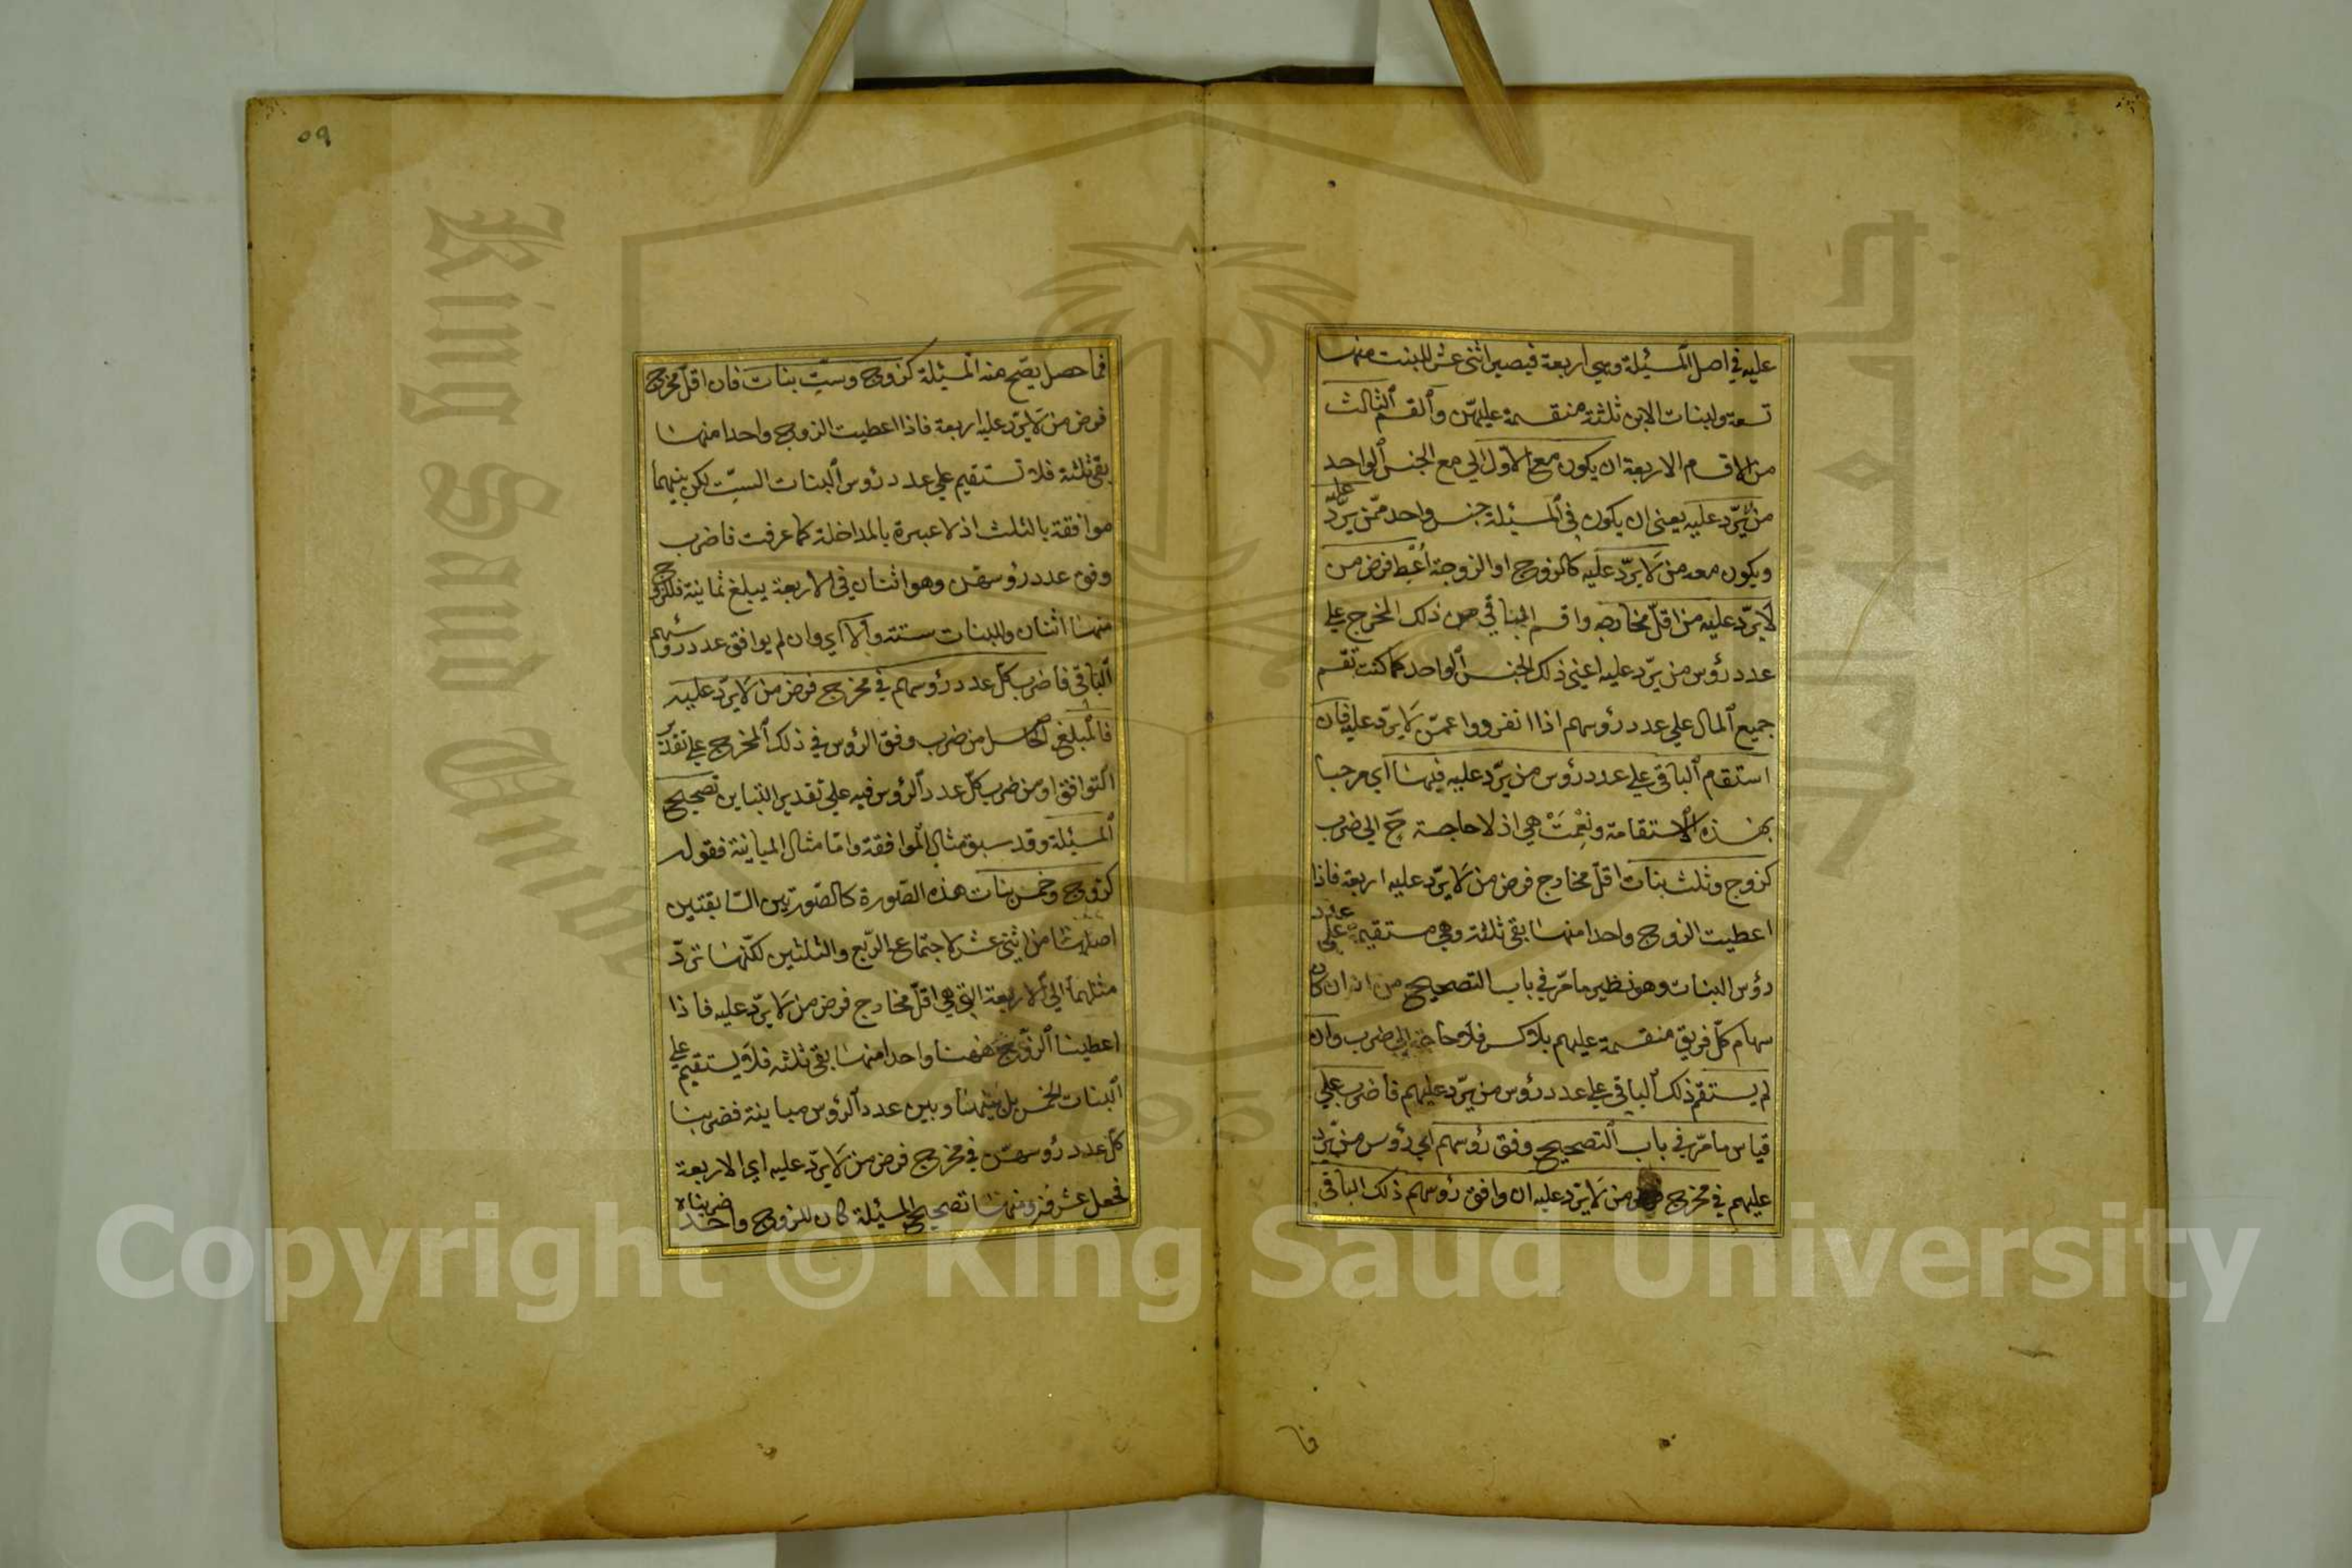 عليه في اصل المسئلة وهي اربعة فيصير اثنى عشر للبنت منها
تسعة ولبنات الابن ثلثة منقسمة عليهن والقسم الثالث
من الاقسام الاربعة ان يكون مع الاول اي مع الجنس الواحد
من يردّ عليه يعني ان يكون في المسئلة جنس واحد ممّن يردّ عليه
ويكون معه من لا يردّ عليه كالزوج او الزوجة اُعْطِ فرض من
لا يردّ عليه من اقلّ مخارجه واقسم الباقي من ذلك المخرج علي
عدد رؤس من يردّ عليه اعني ذلك الجنس الواحد كما كنت تقسم
جميع المال علي عدد رؤسهم اذا انفردوا عمّن لا يردّ عليه فان
استقام الباقي علي عدد رؤس من يردّ عليه فبها اي مرحبا
بهذه الاستقامة ونِعْمَتْ هي اذ لا حاجة ح الي ضرب
كزوج وثلث بنات اقلّ مخارج فرض من لا يردّ عليه اربعة فاذا
اعطيت الزوج واحدا منها بقي ثلثة وهي مستقيمة علي عدد
رؤس البنات وهو نظير ما مرّ في باب التصحيح من انه ان كان
سهام كلّ فريق منقسمة عليهم بلا كسر فلا حاجة الي ضرب وان
لم يستقم ذلك الباقي علي عدد رؤس من يردّ عليهم فاضرب علي
قياس ما مرّ في باب التصحيح وفق رؤسهم اي رؤس من يردّ
عليهم في مخرج فرض من لا يردّ عليه ان وافق رؤسهم ذلك الباقي
فا
٥٩
فما حصل يصحّ منه المسئلة كزوج وستّ بنات فان اقلّ مخرج
فرض من لا يردّ عليه اربعة فاذا اعطيت الزوج واحدا منها
بقي ثلثة فلا تستقيم علي عدد رؤس البنات الستّ لكن بينهما
موافقة بالثلث اذ لا عبرة بالمداخلة كما عرفت فاضرب
وفق عدد رؤسهنّ وهو اثنان في الاربعة يبلغ ثمانية فللزوج
منها اثنان وللبنات ستة والا اي وان لم يوافق عدد رؤسهم
الباقي فاضرب كلّ عدد رؤسهم في مخرج فرض من لا يردّ عليه
فالمبلغ الحاصل من ضرب وفق الرؤس في ذلك المخرج علي تقدير
التوافق او من ضرب كلّ عدد الرؤس فيه علي تقدير التباين تصحيح
المسئلة وقد سبق مثال الموافقة وامّا مثال المباينة فقوله
كزوج وخمس بنات هذه الصّورة كالصّورتين السّابقتين
اصلها من اثني عشر لاجتماع الرّبع والثلثين لكنّها تردّ
مثلهما الي الاربعة التي هي اقلّ مخارج فرض من لا يردّ عليه فاذا
اعطينا الزوج ههنا واحدا منها بقي ثلثه فلا يستقيم علي
البنات الخمس بل بينها وبين عدد الرؤس مباينة فضربنا
كلّ عدد رؤسهنّ في مخرج فرض من لا يردّ عليه اي الاربعة
فحصل عشرون ومنها تصحيح المسئلة كان للزوج واحد ضربناه
Copyright © King Saud University